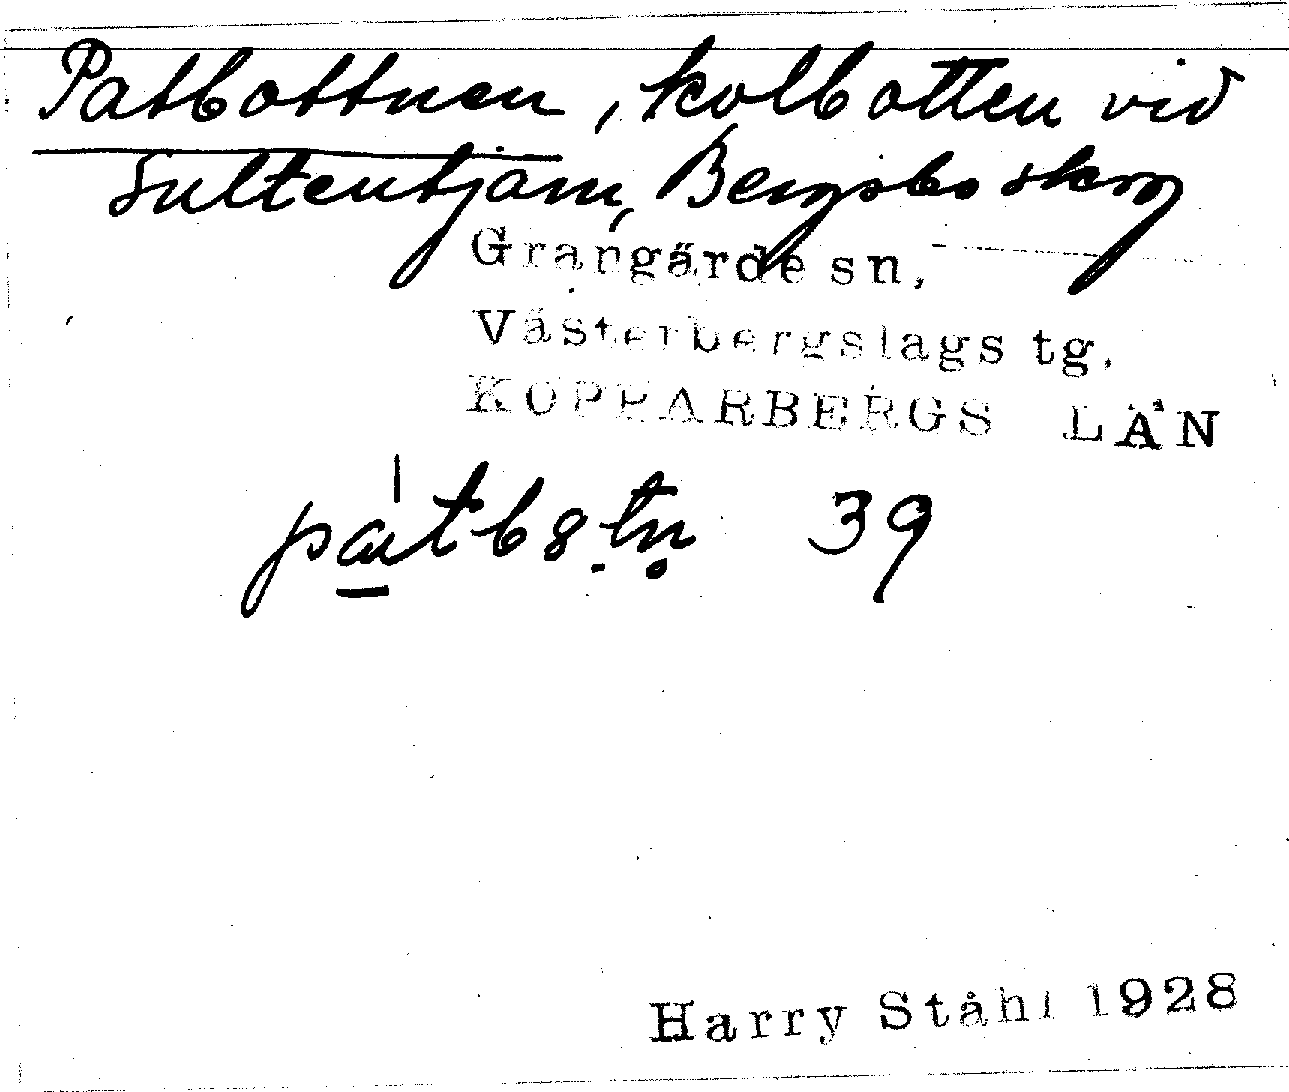 Patbottnen, kolbotten vid
Sultentjärn, Bergsbo skog
Grangärde sn,
Västerbergslags tg.
KOPPARBERGS LÄN
39
Harry Ståhl 1928